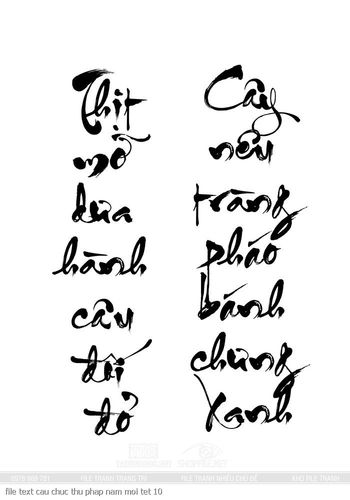 Thịt
mỡ
dưa
hành
câu
đối
đỏ
Cây
nêu
tràng
pháo
bánh
chưng
xanh
FILE TRANH TRANG TRÍ
FILE TRANH NHIỀU CHỦ ĐỀ
KHO FILE TRANH
file text cau chuc thu phap nam moi tet 10